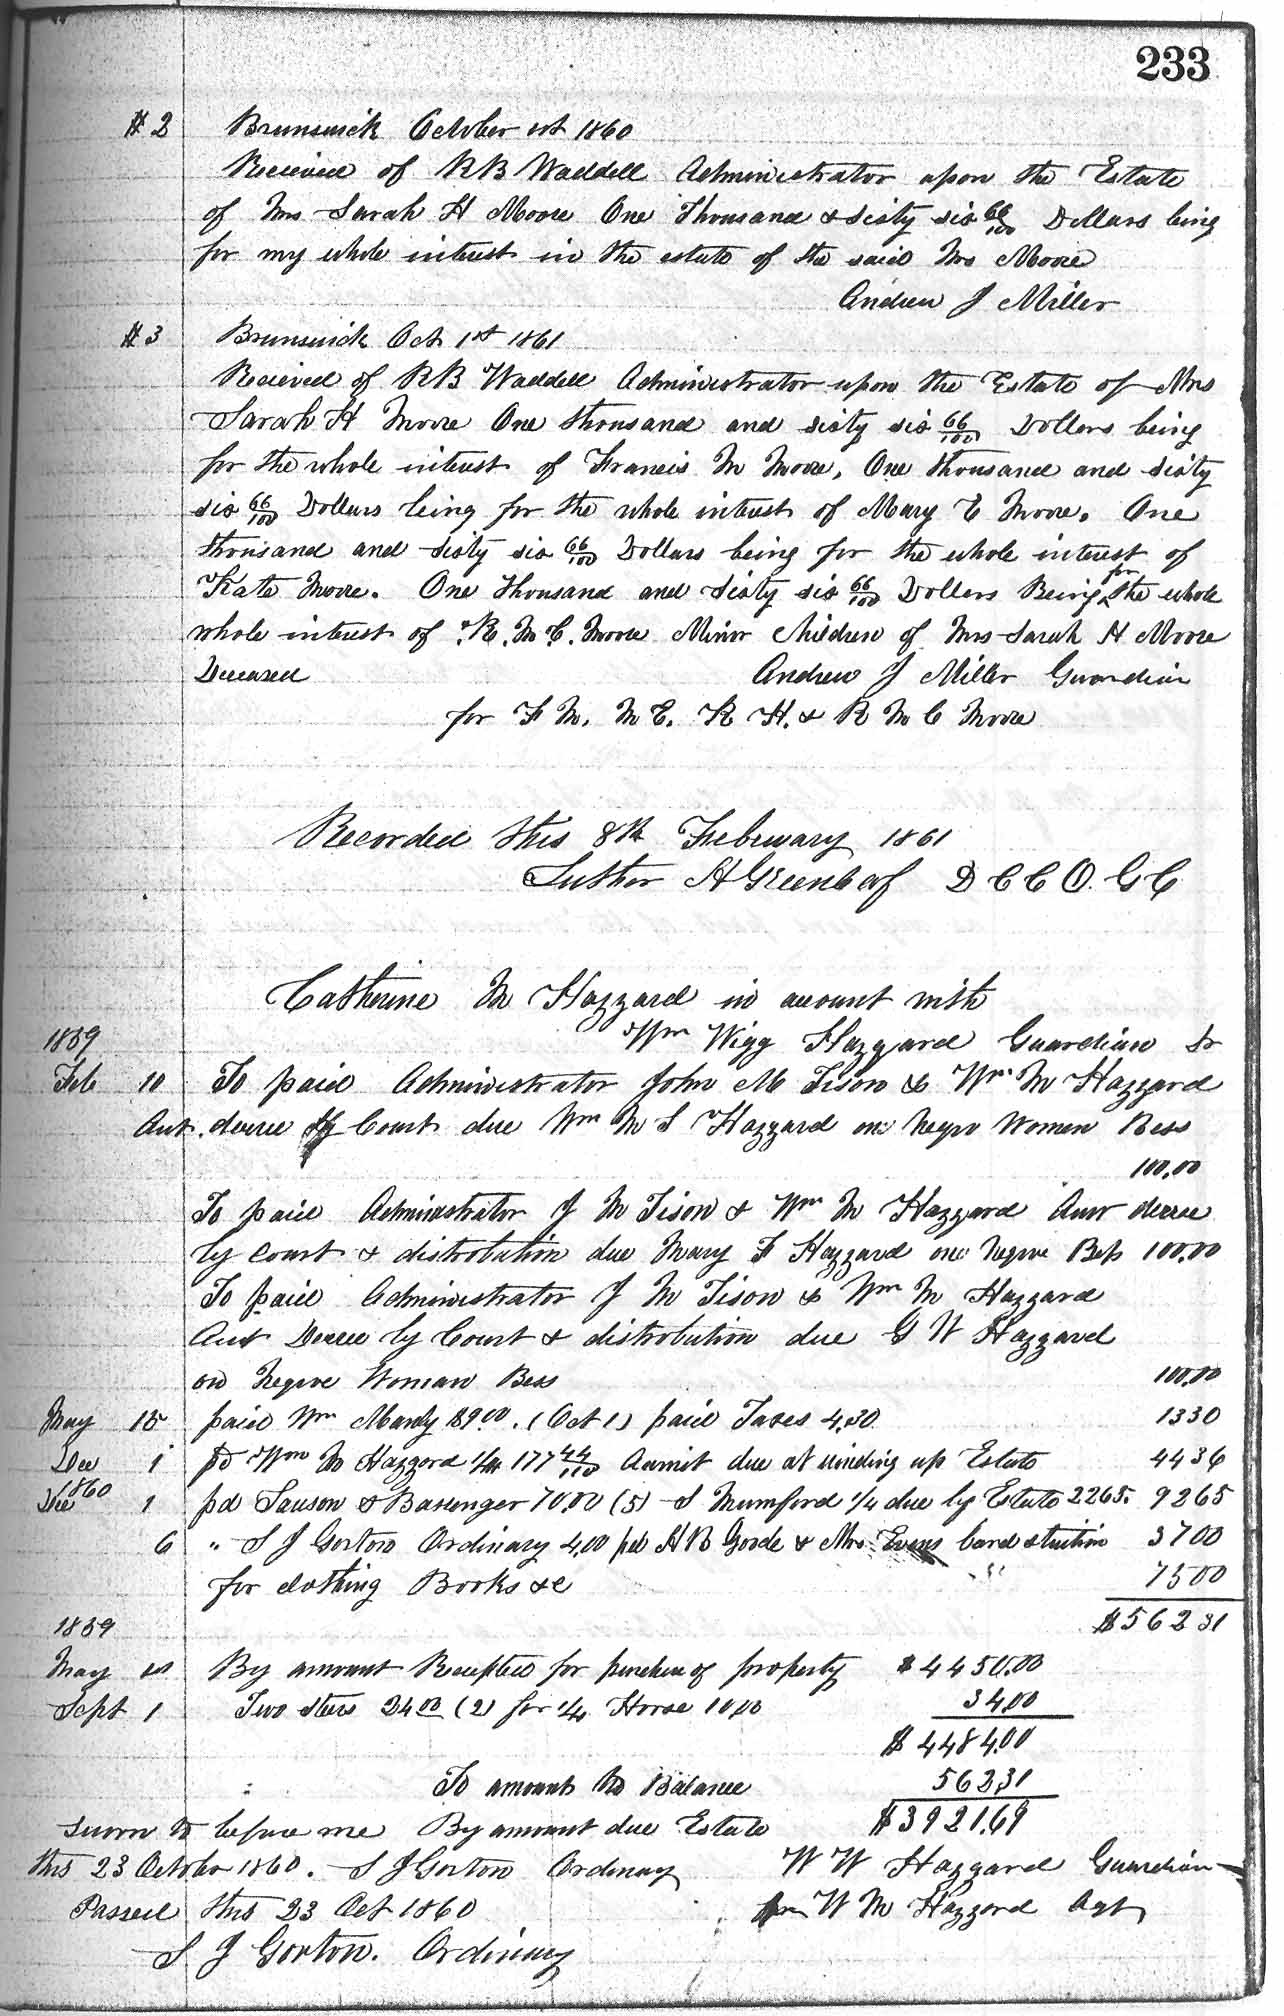 233
# 2 Brunswick October 1st 1860
Recieved of R B Waddell Administrator upon the Estate
of Mrs Sarah H Moore One Thousand & sixty six 66/100 Dollars being
for my whole interest in the estate of the said Mrs Moore
Andrew J Miller
# 3 Brunswick Oct 1st 1861
Recieved of R B Waddell Administrator upon the Estate of Mrs
Sarah H Moore One thousand and sixty six 66/100 Dollars being
for the whole interest of Francis M Moore, One thousand and sixty
six 66/100 Dollars being for the whole interest of Mary E Moore. One
thousand and sixty six 66/100 Dollars being for the whole interest of
Kate Moore. One thousand and sixty six 66/100 Dollars Being for the whole
whole interest of R. M. C. Moore Minor Children of Mrs Sarah H Moore
Deceased Andrew J Miller Guardian
for F M, M E. K H. & R M C Moore
Recorded this 8th Febuary 1861
Luther H Greenleaf D C C O. G C
Catherine M Hazzard in account with
1859 Wm Wigg Hazzard Guardian Dr
Feb 10 To paid Administrator John M Tison & Wm M Hazzard
Ant. decree by Court due Wm M S Hazzard on Negro Women Bess
100.00
To paid Administrator J M Tison & Wm M Hazzard Amt decree
by Court & distrobution due Mary F Hazzard one Negroe Bess 100.00
To paid Administrator J M Tison & Wm M Hazzard
Amt Decree by Court & distrobution due G W Hazzard
on Negroe Woman Bess 100.00
May 15 paid Wm Manly \$9.00. (Oct 1) paid Taxes 4.30 1330
Dec 1 pd Wm M Hazzard 1/4 177 44/100 Aamit due at winding up Estate 4436
1860
Dec 1 pd Lauson & Basenger 70.00 (5) S Mumford 1/4 due by Estate 2265. 9265
6 " S J Gorton Ordinary 4.00 pd H B Goode & Mrs Evens tuition 3700
for clothing Books &c 7500
\$562 31
1859
May 1st By amount Receipted for purchase of property \$4450.00
Sept 1 Two steers 24 00 (2) for 1/4 Horse 10.00 34.00
\$4484.00
To amount to Balance 562.31
\$3921.69
sworn to before me By amount due Estate
this 23 October 1860. S J Gorton Ordinary W W Hazzard Guardian
Passed this 23 Oct 1860 W M Hazzard Agt
S J Gorton. Ordinary